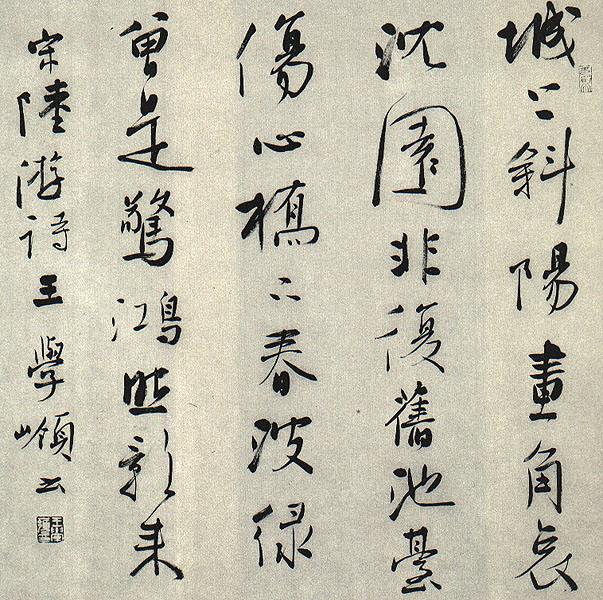 城上斜陽畫角哀
沈園非復舊池臺
傷心橋下春波綠
曾是驚鴻照影來
宋陸游詩王學嶺書